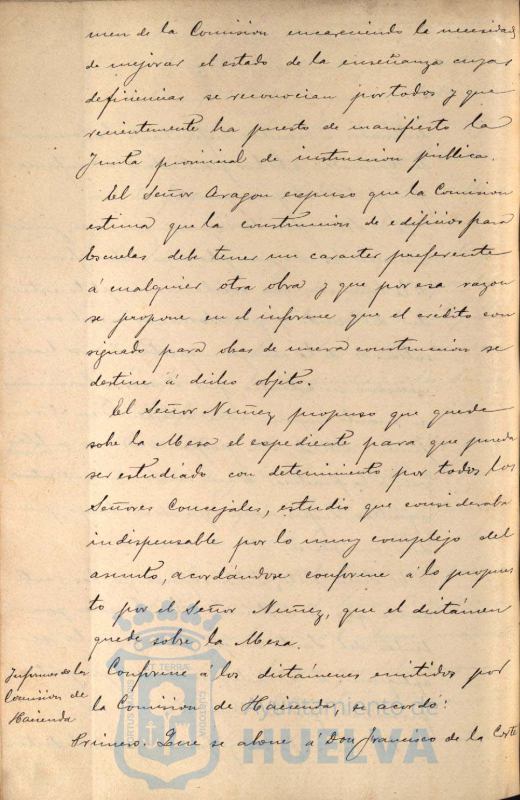 men de la Comision encareciendo la necesidad
de mejorar el estado de la enseñanza cuyas
deficiencias se reconocian por todos y que
recientemente ha puesto de manifiesto la
Junta provincial de instruccion pública.
El Señor Aragon expuso que la Comision
estima que la construccion de edificios para
Escuelas debe tener un caracter preferente
á cualquier otra obra y que por esa razon
se propone en el informe que el crédito con
signado para obras de nueva construccion se
destine á dicho objeto.
El Señor Nuñez, propuso que quede
sobre la Mesa el espediente para que pueda
ser estudiado con detenimiento por todos los
Señores Concejales, estudio que consideraba
indispensable por lo muy complejo del
asunto, acordándose conforme á lo propues
to por el Señor Nuñez, que el dictámen
quede sobre la Mesa.
Informes de la
Comision de
Hacienda
Conforme á los dictámenes emitidos por
la Comision de Hacienda, se acordó:
Primero. Que se abone á Don Francisco de la Corte
PORTUS MARIS ET TERRÆ CUSTODIA
Ayuntamiento de
HUELVA